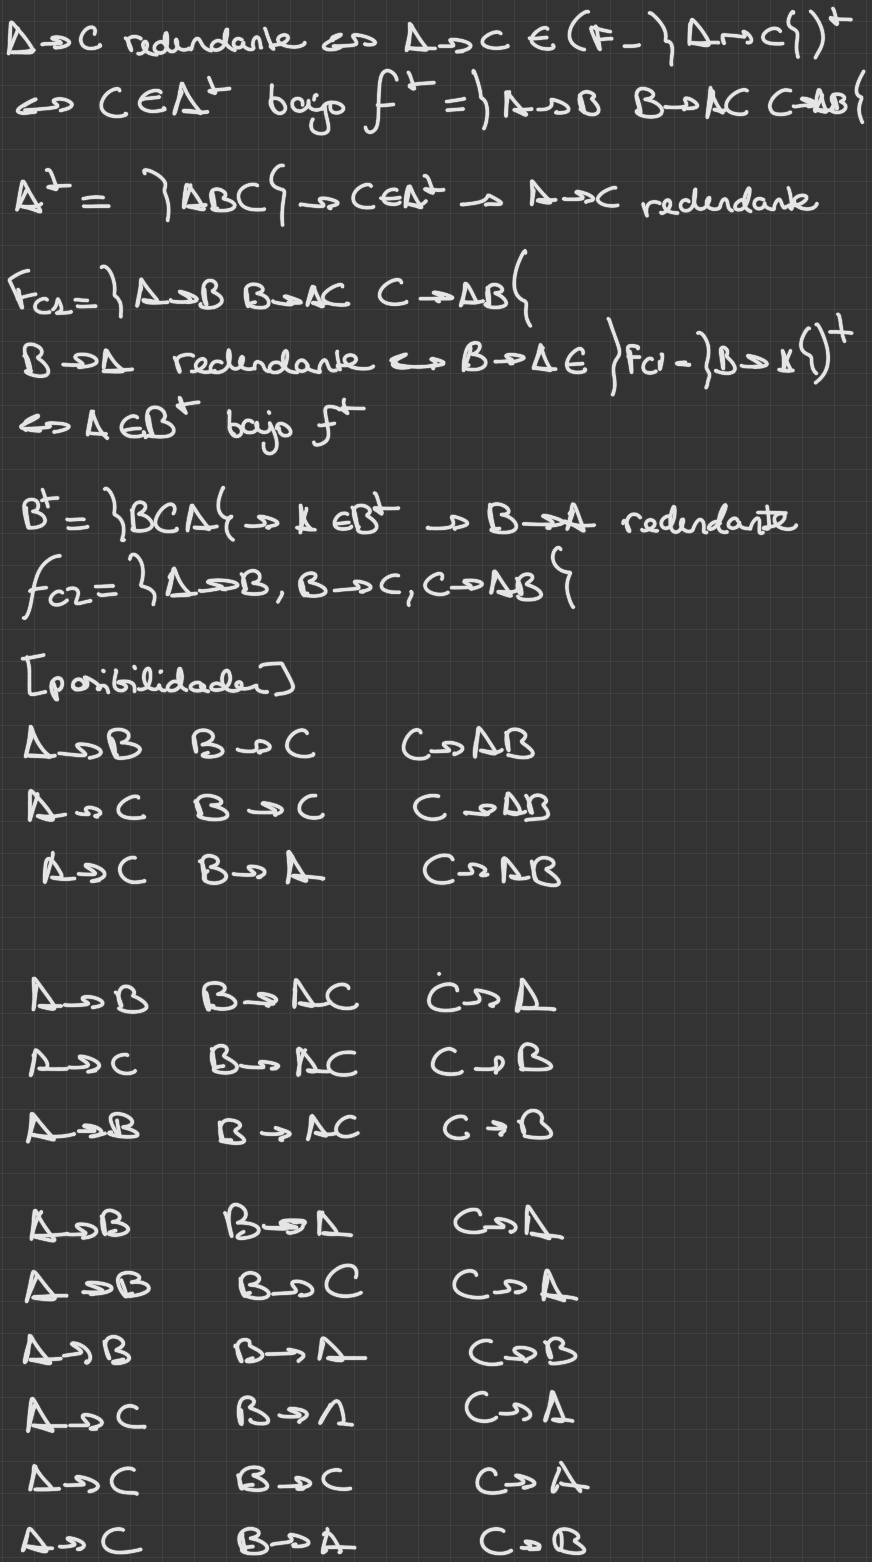 A→C redundante ⇔ A→C ∈ (F - }A→C{)⁺
⇔ C∈A⁺ bajo f⁺ = }A→B B→AC C→AB{
A⁺ = }ABC{ → C∈A⁺ → A→C redundante
Fc1 = }A→B B→AC C→AB{
B→A redundante ⇔ B→A ∈ }Fc1 - }B→A{)⁺
⇔ A∈B⁺ bajo f⁺
B⁺ = }BCA{ → A∈B⁺ → B→A redundante
fc2 = }A→B, B→C, C→AB{
[posibilidades]
A→B B→C C→AB
A→C B→C C→AB
A→C B→A C→AB
A→B B→AC C→A
A→C B→AC C→B
A→B B→AC C→B
A→B B→A C→A
A→B B→C C→A
A→B B→A C→B
A→C B→A C→A
A→C B→C C→A
A→C B→A C→B